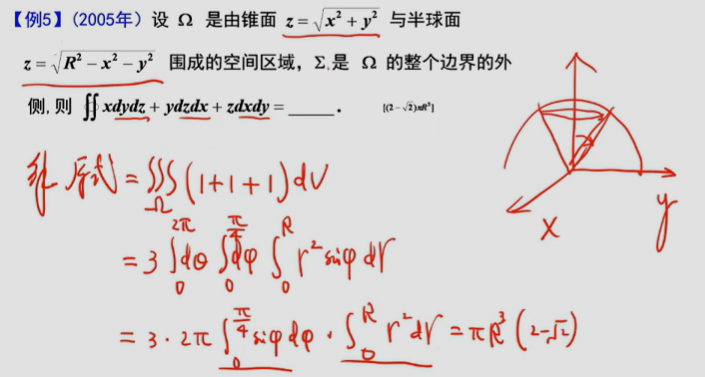 【例5】(2005年) 设 Ω 是由锥面 z = √(x² + y²) 与半球面
z = √(R² − x² − y²) 围成的空间区域, Σ 是 Ω 的整个边界的外
侧, 则 ∬ xdydz + ydzdx + zdxdy = ____. [(2 − √2)πR³]
解 原式 = ∭_Ω (1+1+1) dV
= 3 ∫₀^{2π} dθ ∫₀^{π/4} dφ ∫₀^R r² sinφ dr
= 3 · 2π ∫₀^{π/4} sinφ dφ · ∫₀^R r² dr = πR³ (2−√2)
x
y